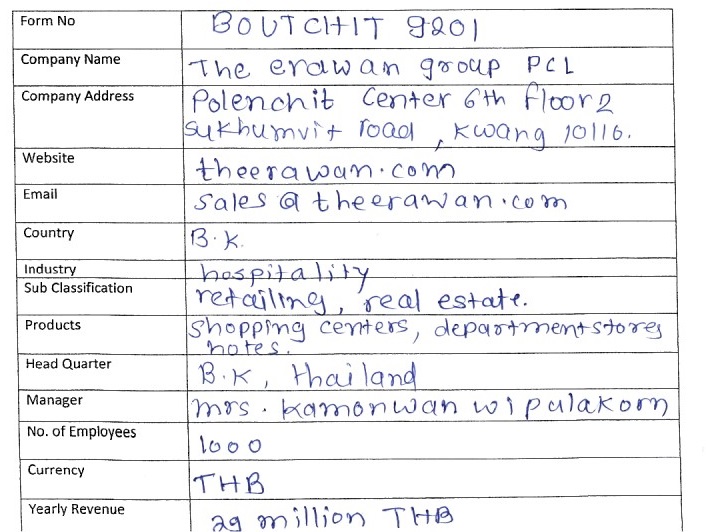 Form No BOUTCHIT 9201
Company Name The erawan group PCL
Company Address Polenchit Center 6th floor 2
sukhumvit road , kwang 10116.
Website theerawan.com
Email sales @ theerawan.com
Country B.K.
Industry hospitality
Sub Classification retailing, real estate.
Products shopping centers, department stores
hotes.
Head Quarter B.K, thailand
Manager mrs. kamonwan wipulakorn
No. of Employees 1000
Currency THB
Yearly Revenue 29 million THB